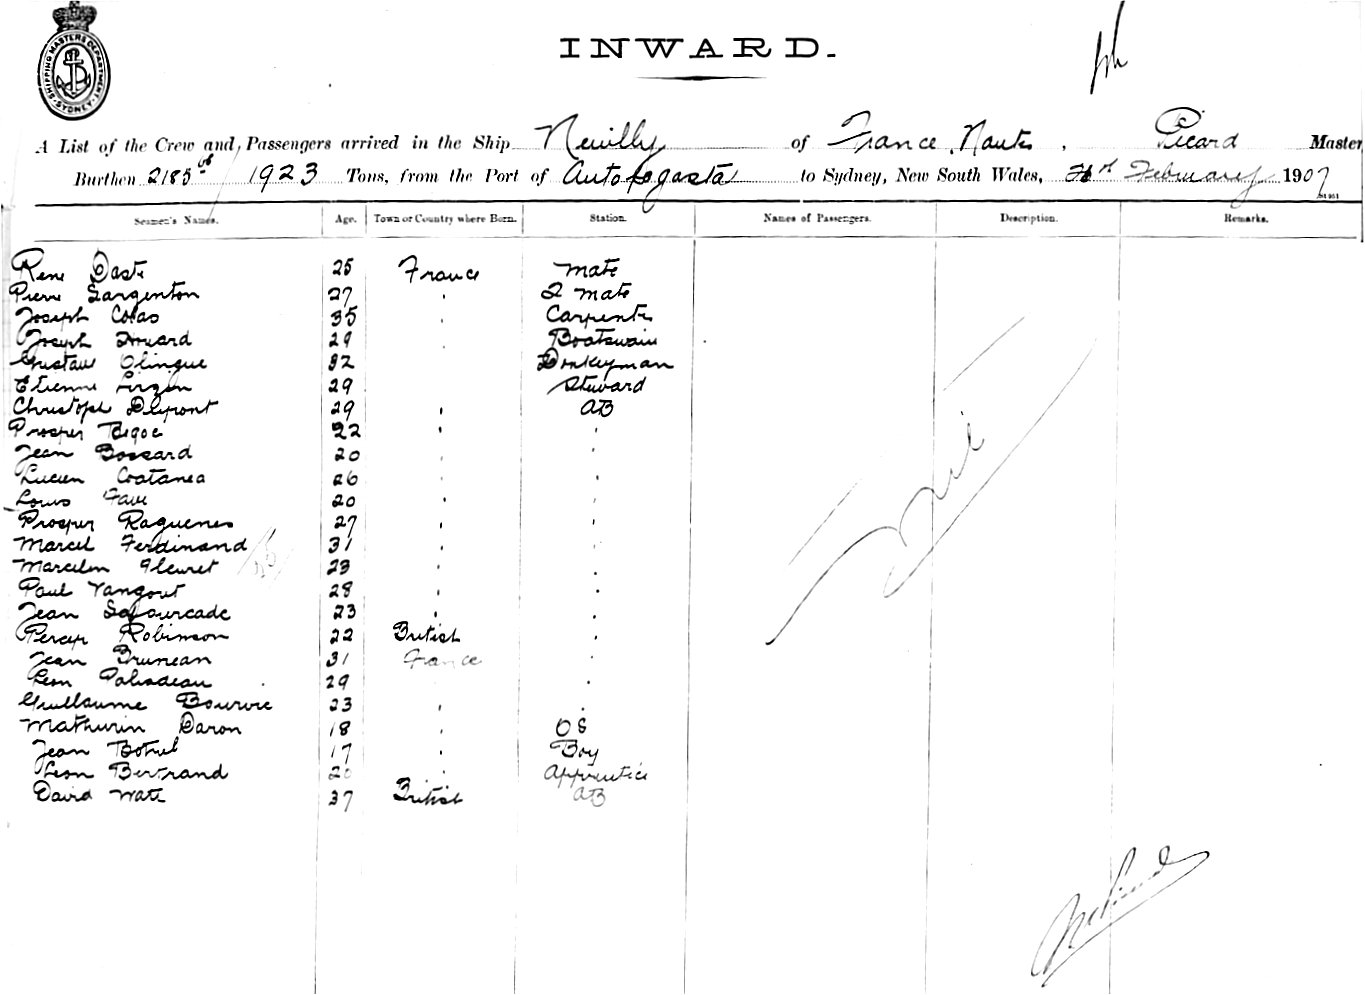 SHIPPING MASTERS DEPARTMENT SYDNEY
INWARD.
A List of the Crew and Passengers arrived in the Ship Neuilly of France, Nantes, Picard Master
Burthen 2185 / 1923 Tons, from the Port of Autofogasta to Sydney, New South Wales, February 1907
Seamen's Names. Age. Town or Country where Born. Station. Names of Passengers. Description. Remarks.
Rene Daste 25 France Mate
Pierre Sargenton 27 " 2 Mate
Joseph Colas 35 " Carpenter
Joseph 29 " Boatswain
Gustave Olingue 32 Donkeyman
Etienne 29 Steward
Christoph Delpont 29 " AB
Prosper Begoc 22 " "
Jean Bossard 20 " "
Lucien Coatanea 26 " "
Louis Fave 20 " "
Prosper Raguenes 27 " "
Marcel Ferdinand 31 " "
Marcelin Fleuret 23 " "
Paul Vangout 28 " "
Jean Lafourcade 23 " "
Percy Robinson 22 British "
Jean Bruneau 31 France "
Leon Palvadeau 29 "
Guillaume Bourvic 23 " "
Mathurin Daron 18 " OS
Jean Botrel 17 " Boy
Leon Bertrand 20 " Apprentice
David Watt 37 British AB
Nil